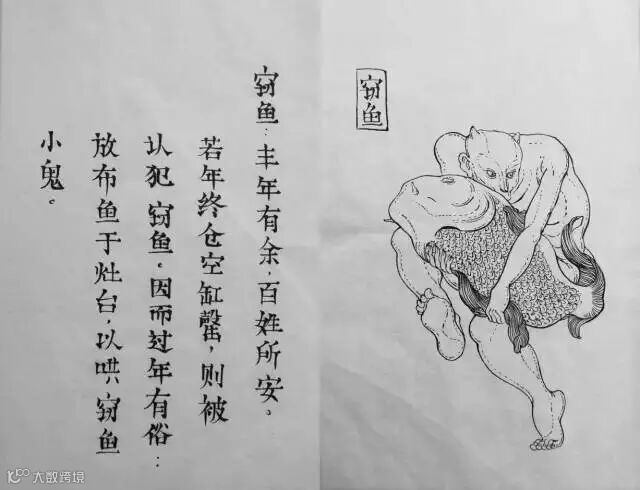 窃鱼：丰年有余，百姓所安。
若年终仓空缸罄，则被
认犯窃鱼。因而过年有俗：
放布鱼于灶台，以哄窃鱼
小鬼。
窃鱼
大数跨境